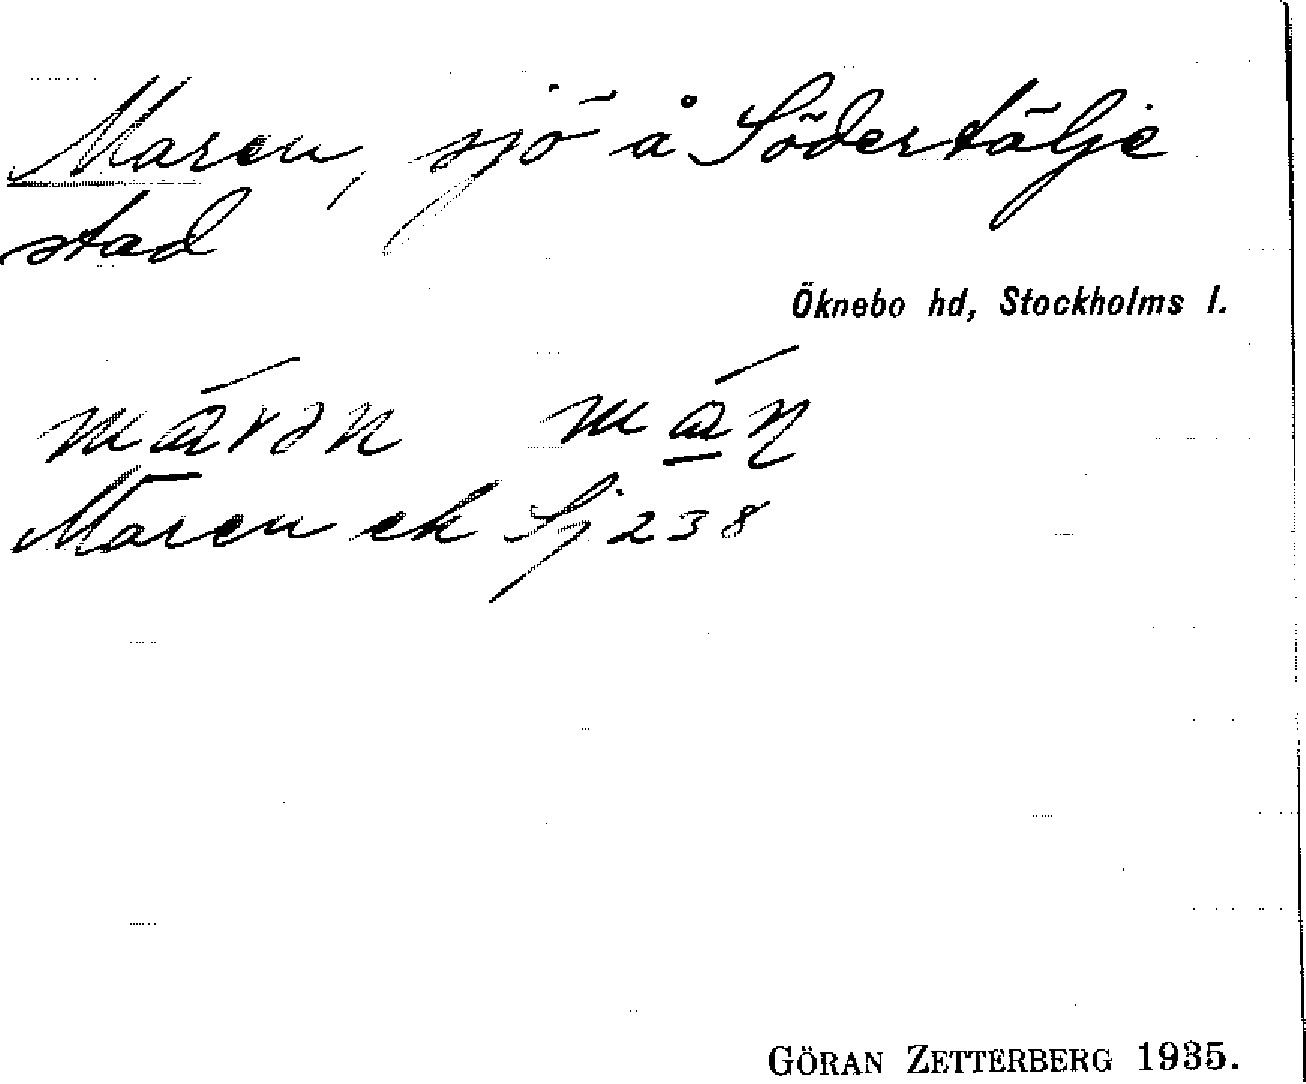 Maren, sjö å Södertälje
stad
Öknebo hd, Stockholms l.
Maren ek Sj 238
GÖRAN ZETTERBERG 1935.